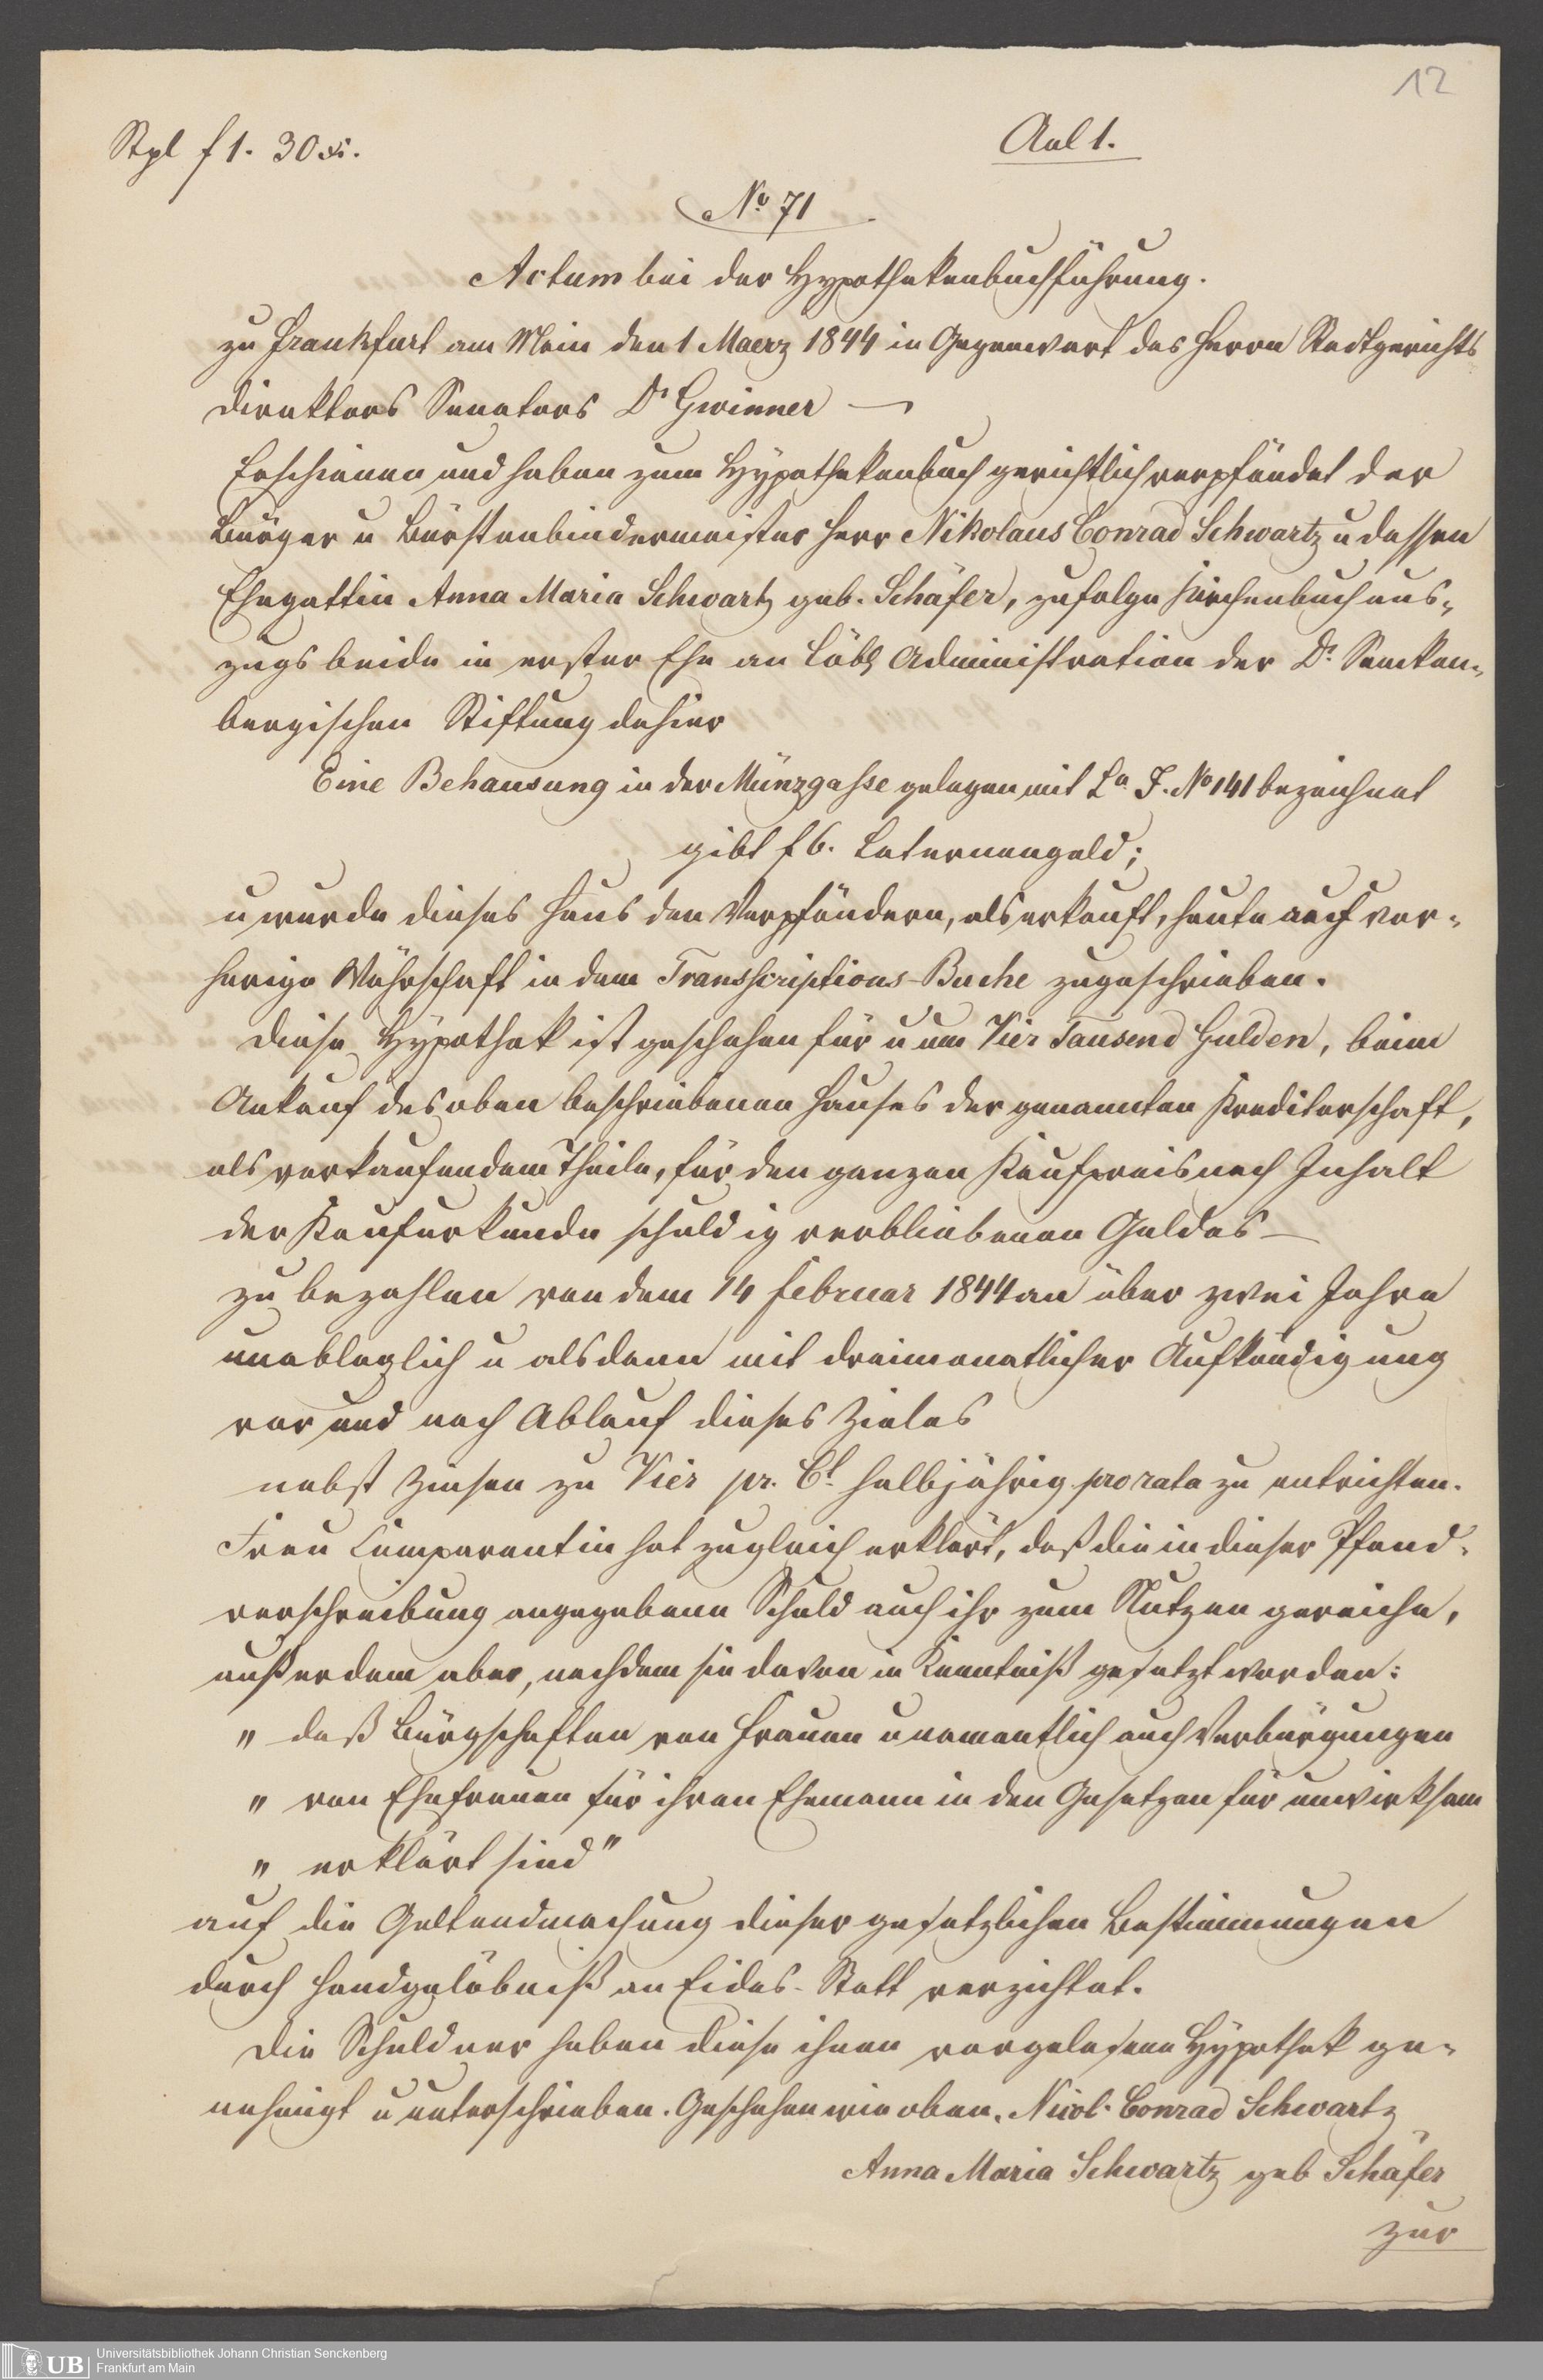 12
Stpl f 1. 30 xr.
Anl 1.
No 71
Actum bei der Hypothekenbuchführung.
zu Frankfurt am Main den 1 Maerz 1844 in Gegenwart des Herrn Stadtgerichts
direktors Senators Dr Gwinner —
Erschienen und haben zum Hypothekenbuch gerichtlich verpfändet der
Bürger u Bürstenbindermeister Herr Nikolaus Conrad Schwartz u dessen
Ehegattin Anna Maria Schwartz geb. Schäfer, zufolge Kirchenbuchaus-
zugs beide in erster Ehe an Löbl Administration der Dr. Sencken-
bergischen Stiftung dahier
Eine Behausung in der Münzgasse gelegen mit La. J. No 141 bezeichnet
gibt f 6. Laternengeld;
u wurde dieses Haus den Verpfändern, als erkauft, heute auf vor-
herige Währschaft in dem Transscriptions-Buche zugeschrieben.
Diese Hypothek ist geschehen für u um Vier Tausend Gulden, beim
Ankauf des oben beschriebenen Hauses der genannten Kreditorschaft,
als verkaufendem Theile, für den ganzen Kaufpreis nach Inhalt
der Kaufurkunde schuldig verbliebenen Geldes —
zu bezahlen von dem 14 Februar 1844 an über zwei Jahre
unableglich u alsdann mit dreimonatlicher Aufkündigung
vor und nach Ablauf dieses Zieles
nebst Zinsen zu Vier pr. Ct. halbjährig pro rata zu entrichten.
Frau Comparentin hat zugleich erklärt, daß die in dieser Pfand-
verschreibung angegebene Schuld auch ihr zum Nutzen gereiche,
außerdem aber, nachdem sie davon in Kenntniß gesetzt worden:
" daß Bürgschaften von Frauen u namentlich auch Verbürgungen
" von Ehefrauen für ihren Ehemann in den Gesetzen für unwirksam
" erklärt sind"
auf die Geltendmachung dieser gesetzlichen Bestimmungen
durch Handgelöbniß an Eides-Statt verzichtet.
Die Schuldner haben diese ihnen vorgelesene Hypothek ge-
nehmigt u unterschrieben. Geschehen wie oben. Nicol. Conrad Schwartz
Anna Maria Schwartz geb Schäfer
zur
UB
Universitätsbibliothek Johann Christian Senckenberg
Frankfurt am Main